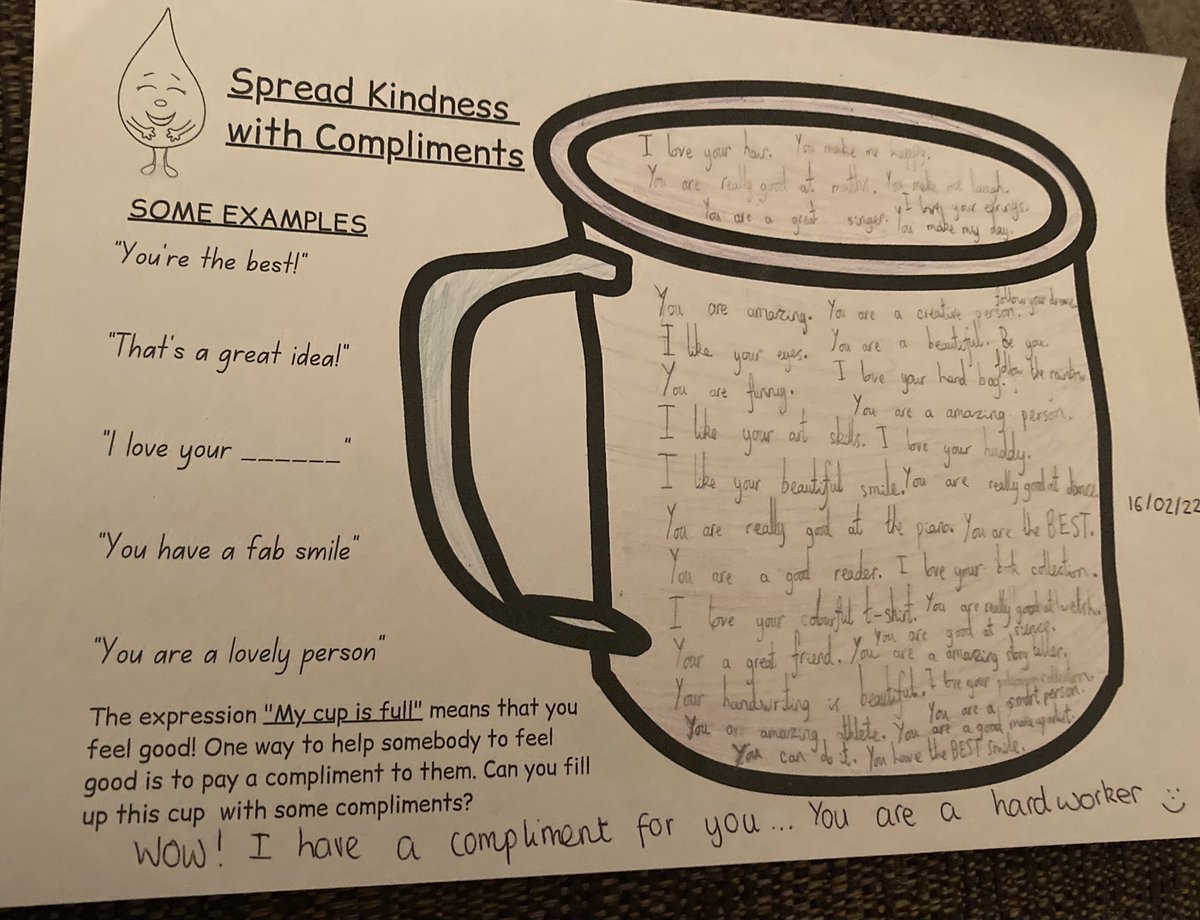 Spread Kindness
with Compliments
SOME EXAMPLES
"You're the best!"
"That's a great idea!"
"I love your ______"
"You have a fab smile"
"You are a lovely person"
The expression "My cup is full" means that you
feel good! One way to help somebody to feel
good is to pay a compliment to them. Can you fill
up this cup with some compliments?
I love your hair. You make me happy.
You are really good at maths. You make me laugh.
You are a great singer. I love your
You make my day.
follow your dreams
You are amazing. You are a creative person.
I like your eyes. You are a beautiful. Be you.
You are funny. I love your hand bag. follow the rainbow
You are a amazing person.
I like your art skills. I love your
I like your beautiful smile. You are really good at dance.
You are really good at the piano. You are the BEST.
You are a good reader. I love your collection.
I love your colourful t-shirt. You are really good at welsh.
You are good at sience.
Your a great friend. You are a amazing story teller.
Your handwriting is beautiful. I love your collection.
You are a smart person.
You are amazing athlete. You are a good
You can do it. You have the BEST smile.
16/02/22
WOW! I have a compliment for you... You are a hardworker